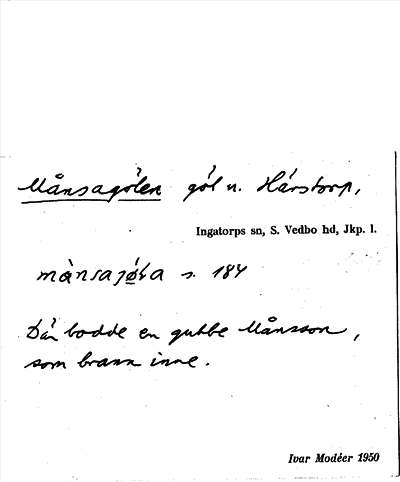 Månsagölen göl n. Hårstorp,
Ingatorps sn, S. Vedbo hd, Jkp. l.
s. 184
Där bodde en gubbe Månsson,
som brann inne.
Ivar Modéer 1950